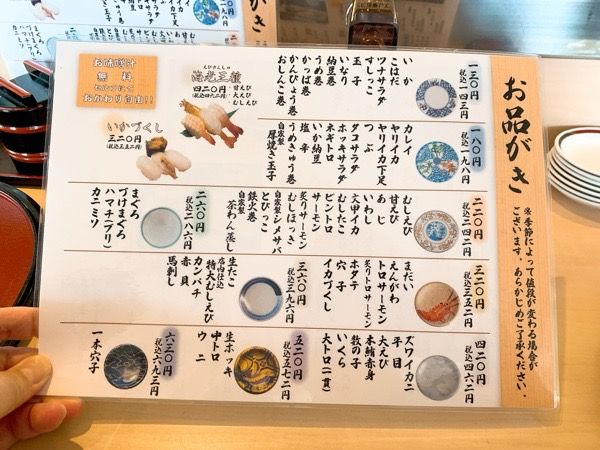 お品がき
※季節によって値段が変わる場合が
ございます。あらかじめご了承ください。
一三〇円
税込一四三円
いか
こはだ
ツナサラダ
すしっこ
玉子
いなり
納豆巻
うめ巻
かっぱ巻
かんぴょう巻
おしんこ巻
一八〇円
税込一九八円
カレイ
ヤリイカ
ヤリイカ下足
つぶ
タコサラダ
ホッキサラダ
ネギトロ
いか納豆
塩辛
うめきゅう巻
自家製厚焼き玉子
二二〇円
税込二四二円
むしえび
甘えび
あじ
いわし
文甲イカ
むしたこ
ビントロ
サーモン
炙りサーモン
むしほっき
自家製シメサバ
とびっこ
鉄火巻
自家製茶わん蒸し
二六〇円
税込二八六円
まぐろ
づけまぐろ
ハマチ(ブリ)
カニミソ
三二〇円
税込三五二円
まだい
えんがわ
トロサーモン
炙りトロサーモン
ホタテ
穴子
イカづくし
三六〇円
税込三九六円
生たこ
店内仕込特大むしえび
カンパチ
赤貝
馬刺し
四二〇円
税込四六二円
ズワイカニ
平目
大えび
本鮪赤身
数の子
いくら
大トロ(一貫)
五二〇円
税込五七二円
生ホッキ
中トロ
ウニ
六三〇円
税込六九三円
一本穴子
えびさんしゅ
海老三種
四二〇円
(税込四六二円)
・甘えび
・大えび
・むしえび
いかづくし
三二〇円
(税込三五二円)
お味噌汁
無料
セルフにて
おかわり自由!!